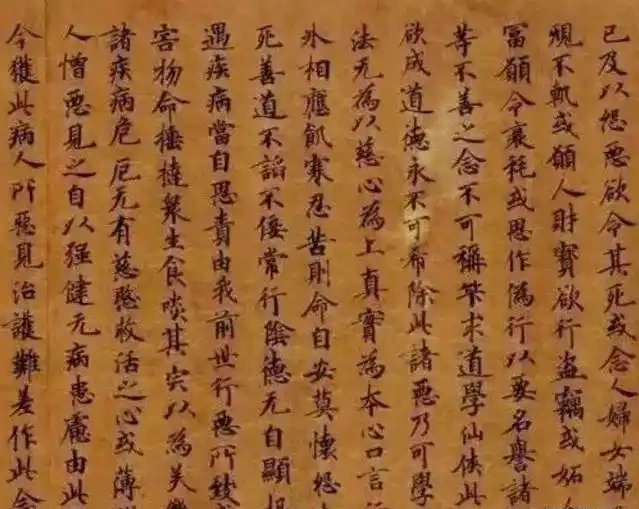 已及以怨惡欲令其死或念人婦女端
䂓不軌或願人財寳欲行盗竊或妬
冨願令衰耗或思作偽行以要名譽諸
等不善之念不可稱筭求道學仙俠此
欲成道德永不可希除此諸惡乃可學
法无為以慈心為上真實為本心口言
氷相應飢寒忍苦則命自安莫懷怨
死善道不諂不佞常行陰德无自顯
遇疾病當自思責由我前世行惡所致
害物命捶撻衆生食啖其宍以為美
諸疾病危厄无有慈愍救活之心或薄
人憎惡見之自以强健无病患䖏由此
今獲此病人所惡見治護難差作此